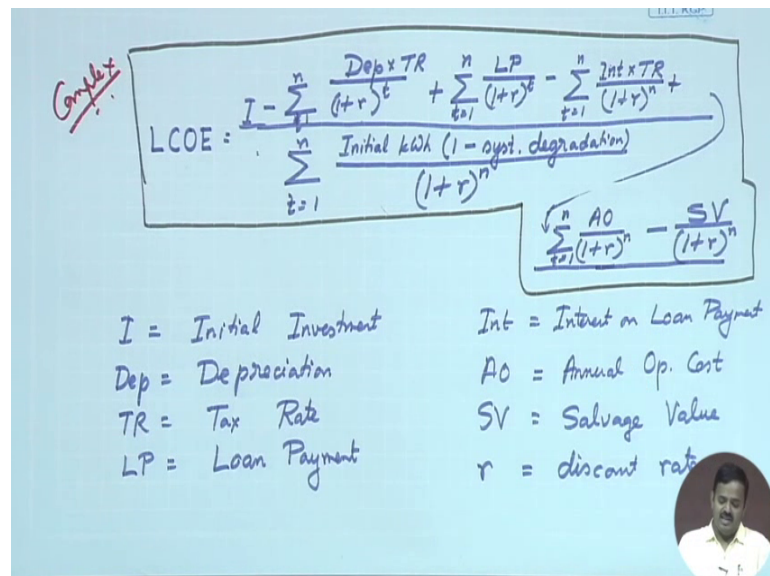 I.I.T. KGP
Complex
LCOE = I - \sum_{t=1}^{n} \frac{Dep \times TR}{(1+r)^t} + \sum_{t=1}^{n} \frac{LP}{(1+r)^t} - \sum_{t=1}^{n} \frac{Int \times TR}{(1+r)^n} +
\sum_{t=1}^{n} \frac{Initial kWh (1 - syst. degradation)}{(1+r)^n}
\sum_{t=1}^{n} \frac{AO}{(1+r)^n} - \frac{SV}{(1+r)^n}
I = Initial Investment
Dep = Depreciation
TR = Tax Rate
LP = Loan Payment
Int = Interest on Loan Payment
AO = Annual Op. Cost
SV = Salvage Value
r = discount rate